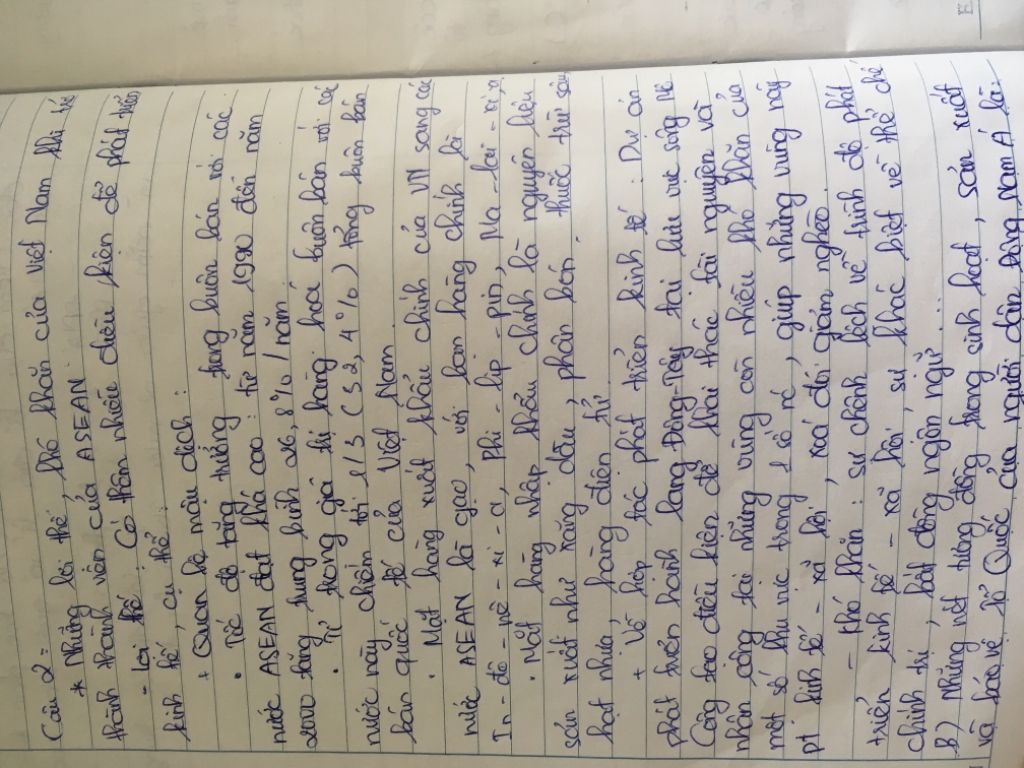 Câu 2:
* Những lợi thế, khó khăn của Việt Nam khi trở
thành thành viên của ASEAN
- Lợi thế: Có thêm nhiều điều kiện để phát triển
kinh tế, cụ thể:
+ Quan hệ mậu dịch:
• Tốc độ tăng trưởng trong buôn bán với các
nước ASEAN đạt khá cao: từ năm 1990 đến năm
2000 tăng trung bình 26,8% / năm
• Tỉ trọng giá trị hàng hoá buôn bán với các
nước này chiếm tới 1/3 (32,4%) tổng buôn bán
bán quốc tế của Việt Nam.
• Mặt hàng xuất khẩu chính của VN sang các
nước ASEAN là gạo, với bạn hàng chính là
In-đô-nê-xi-a, Phi-lip-pin, Ma-lai-xi-a
• Mặt hàng nhập khẩu chính là nguyên liệu
sản xuất như xăng dầu, phân bón, thuốc trừ sâu
hạt nhựa, hàng điện tử
+ Về hợp tác phát triển kinh tế: Dự án
phát triển hành lang Đông-Tây tại lưu vực sông Mê
Công tạo điều kiện để khai thác tài nguyên và
nhân công tại những vùng còn nhiều khó khăn của
một số khu vực trong lộ, giúp những vùng này
pt kinh tế - xã hội, xoá đói giảm nghèo.
- Khó khăn: sự chênh lệch về trình độ phát
triển kinh tế - xã hội, sự khác biệt về thể chế
chính trị, bất đồng ngôn ngữ...
B) Những nét tương đồng trong sinh hoạt, sản xuất
và bảo vệ Tổ Quốc của người dân Đông Nam Á là: